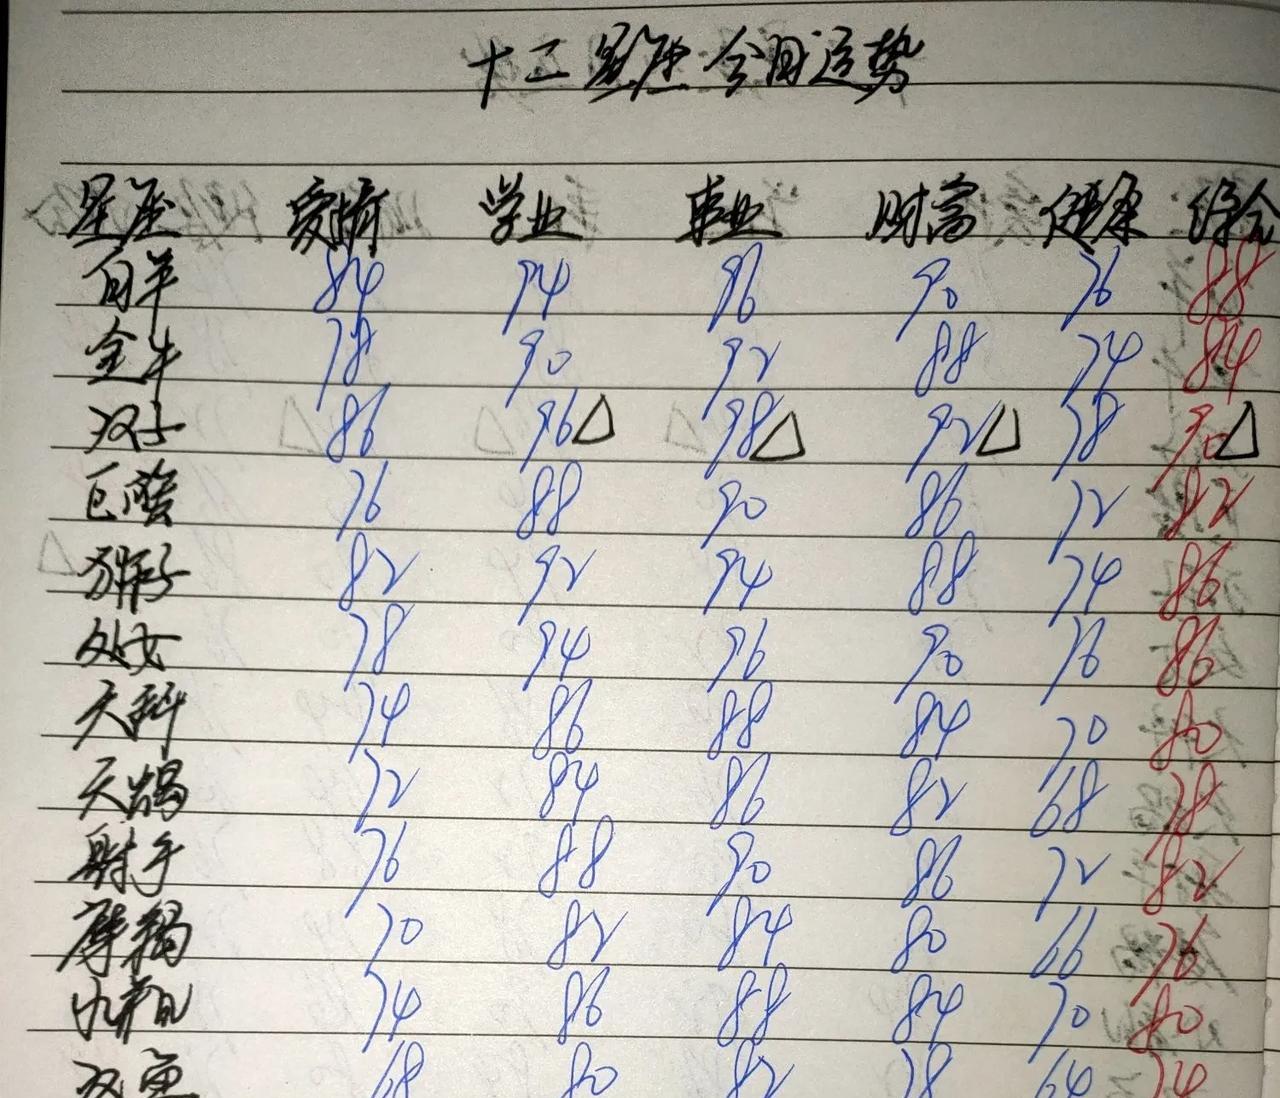 十二星座今日运势
星座 爱情 学业 事业 财富 健康 综合
白羊 84 94 96 90 76 88
金牛 78 90 92 88 74 84
双子 86 96△ 98△ 92△ 78 90△
巨蟹 76 88 90 86 72 82
狮子 82 92 94 88 74 86
处女 78 94 96 90 76 86
天秤 74 86 88 84 70 80
天蝎 72 84 86 82 68 78
射手 76 88 90 86 72 82
摩羯 70 82 84 80 66 76
水瓶 74 86 88 84 70 80
双鱼 68 80 82 78 64 74